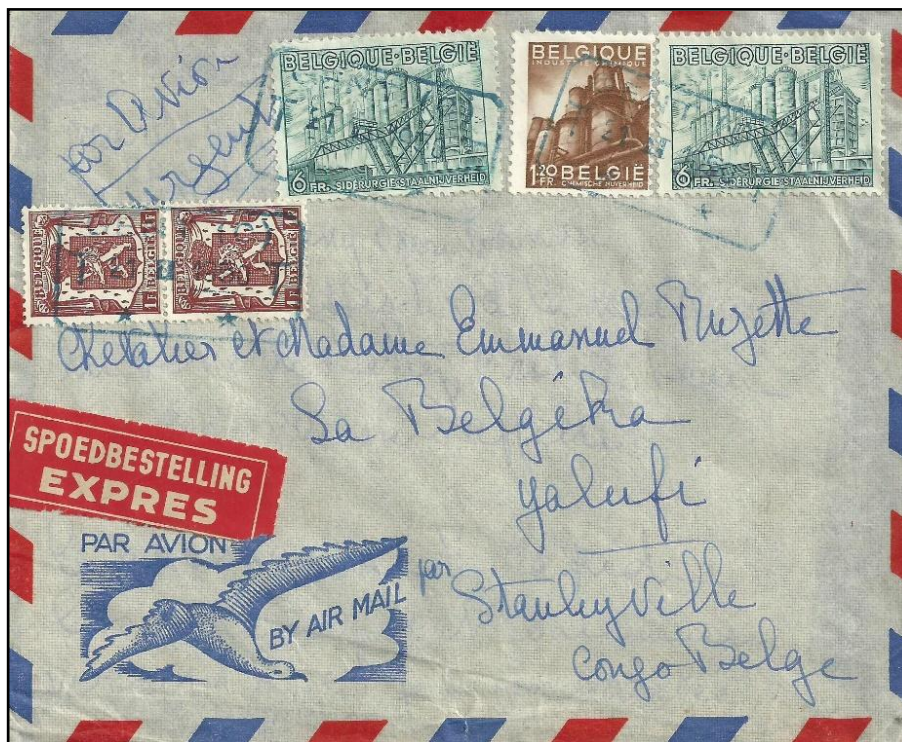 par Avion
urgent
BELGIQUE·BELGIË
6 FR. SIDÉRURGIE·STAALNIJVERHEID
BELGIQUE
INDUSTRIE CHIMIQUE
1.20 FR. BELGIË
CHEMISCHE NIJVERHEID
BELGIQUE·BELGIË
6 FR. SIDÉRURGIE·STAALNIJVERHEID
BELGIQUE 1F BELGIE 1F
BELGIQUE 1F BELGIE 1F
Chevalier et Madame Emmanuel Ruzette
La Belgika
Yalufi
par Stanleyville
Congo Belge
SPOEDBESTELLING
EXPRES
PAR AVION
BY AIR MAIL